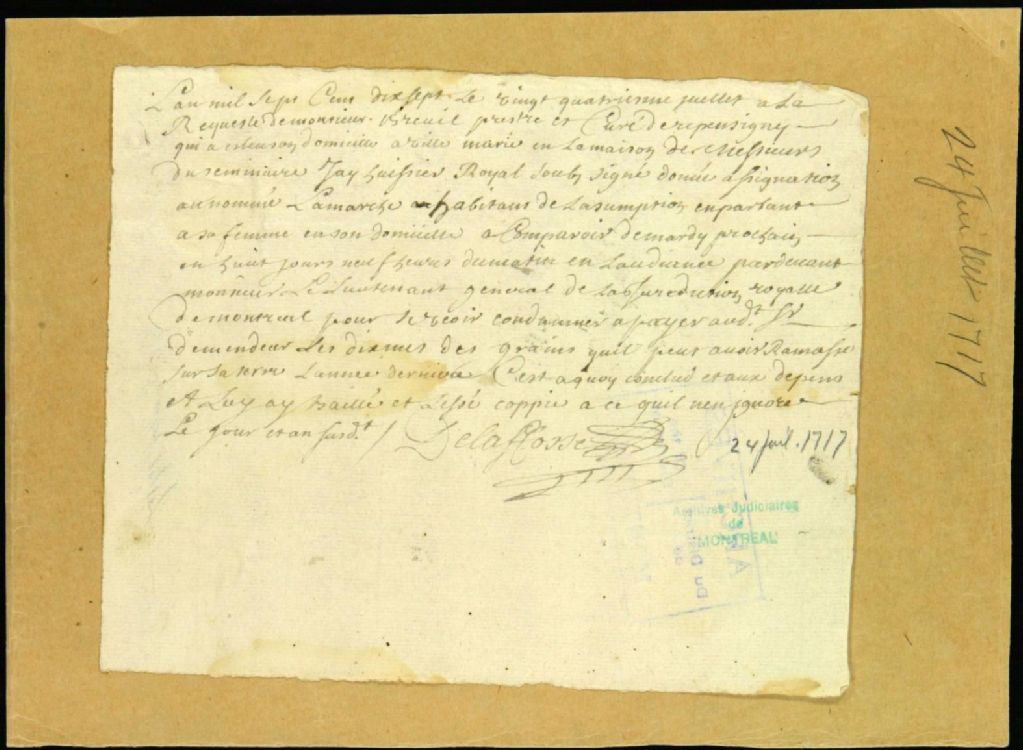 L'an mil sept Cens dix sept Le vingt quatriesme juillet a La
Requeste de monsieur breuil prestre et Curé de repentigny
qui a esleu son domicille a ville marie en La maison de Messieurs
du seminaire Jay huissier Royal soubs signé donné assignation
au nommé Lamarche habitans de Lasumption en parlant
a sa femme en son domicille a Comparoir de mardy prochain
en huit jours neuf heures du matin en Laudiance pardevant
monsieur Le Lieutenant general de La jurediction royalle
de montreal pour se veoir condamner a payer aud.t Sr
demendeur Les dixmes des grains quil peut avoir Ramassé
sur sa terre Lannée derniere Cest a quoy conclud et aux depens
et Luy ay baillé et Lessé coppie a ce quil nen jgnore
Le jour et an susd.t /
Delafosse
24 Juil. 1717
Archives Judiciaires
de
MONTREAL
24 Juillet 1717